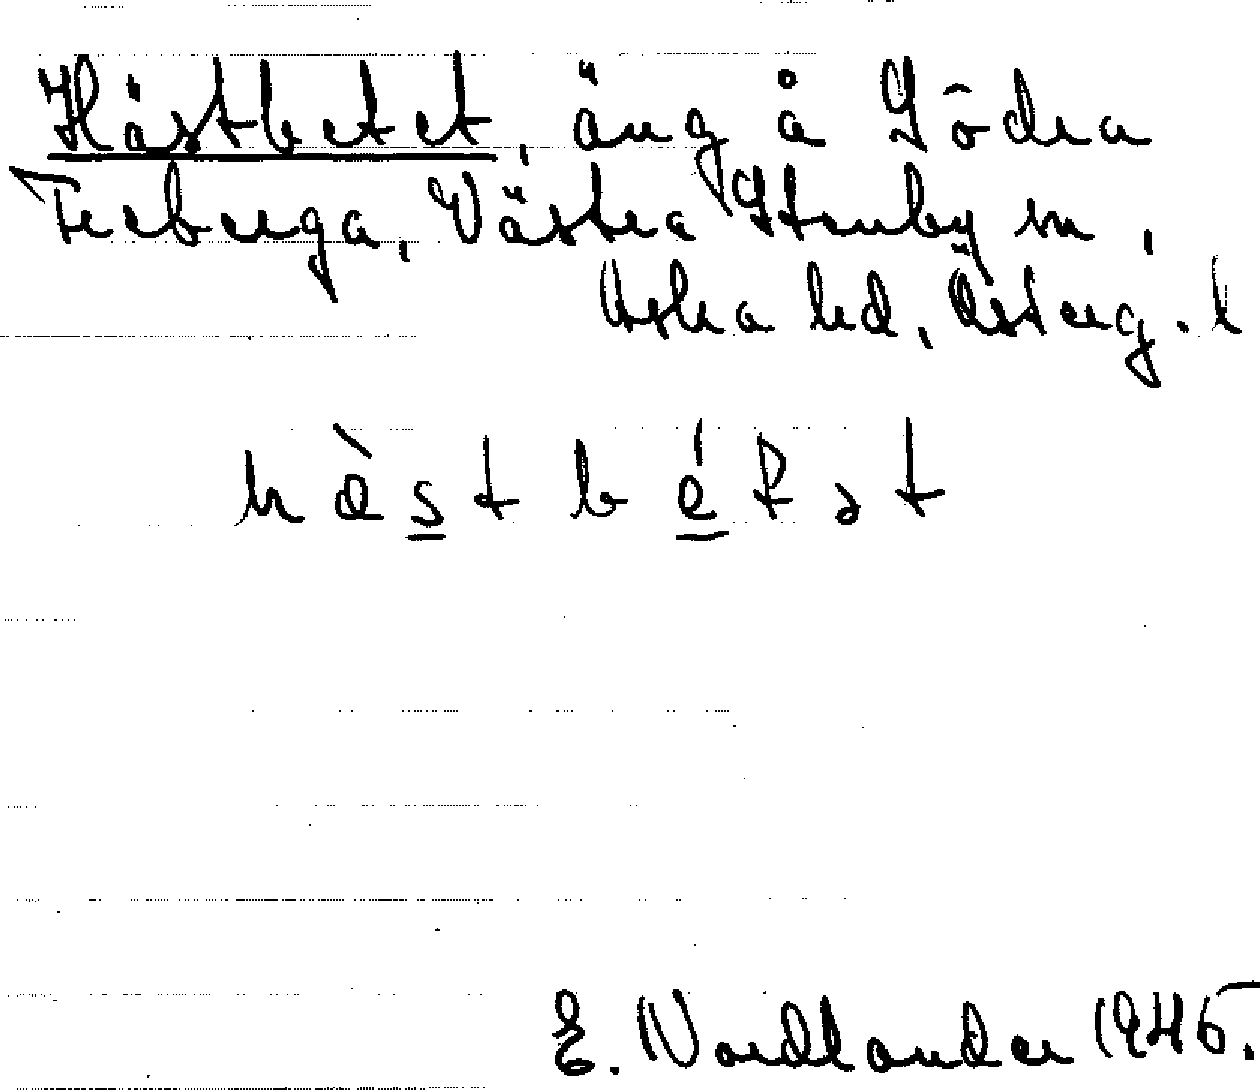 Hästbetet, äng å Södra
Freberga, Västra Stenby sn,
Aska hd, Österg. l
hàstbétət
E. Nordlander 1945.